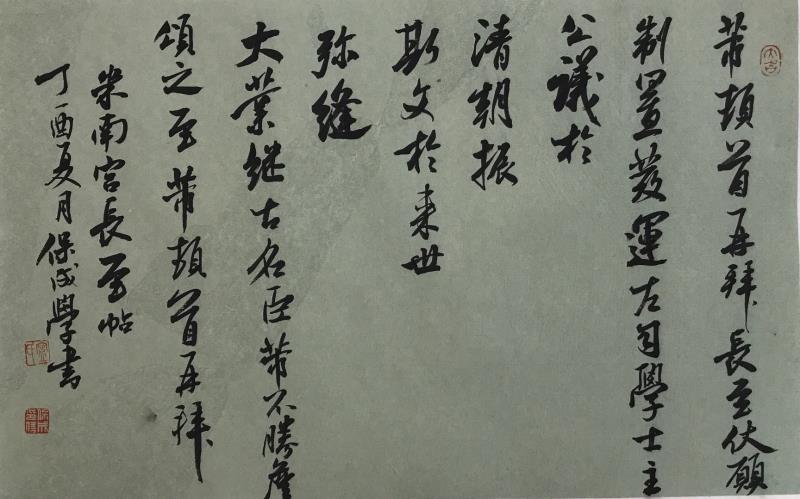 芾頓首再拜長至伏願
制置發運左司學士主
公議於
清朝振
斯文於來世
弥縫
大業继古名臣芾不勝詹
頌之至芾頓首再拜
米南宫長至帖
丁酉夏月保成學書